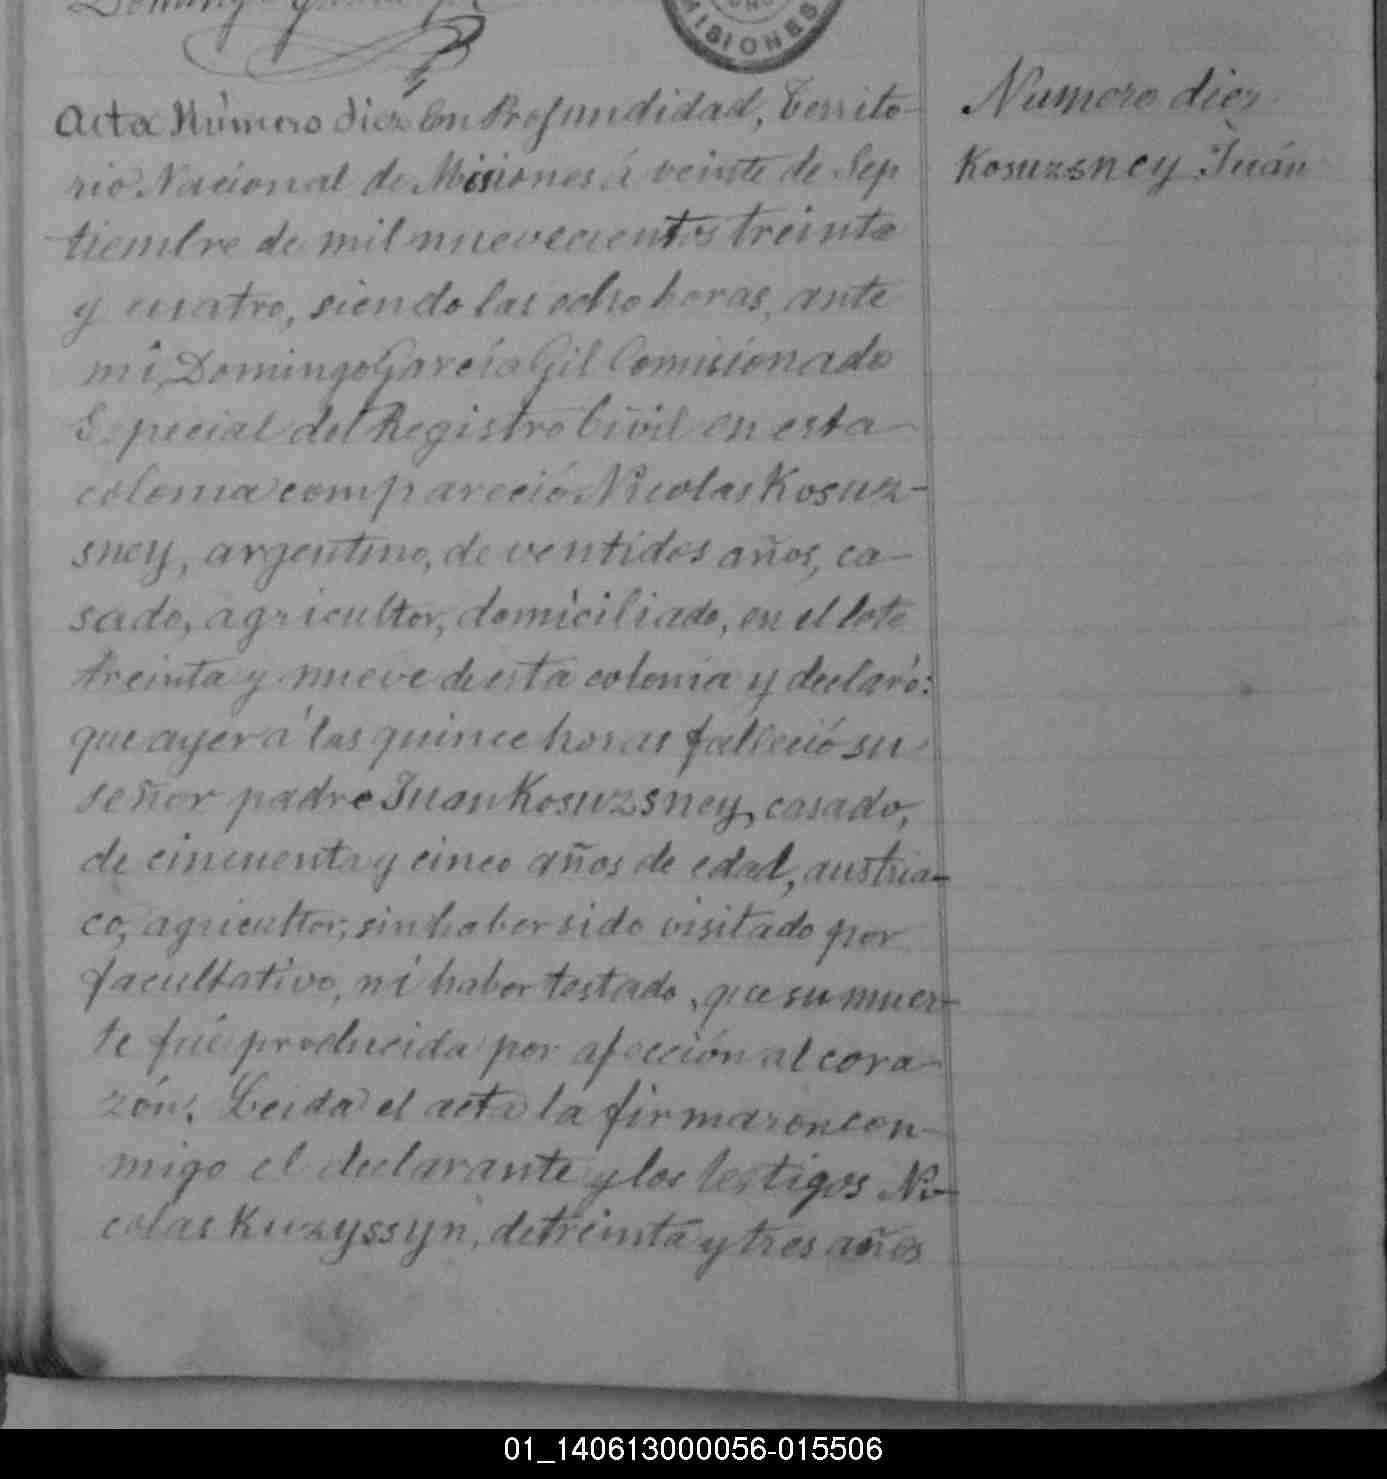 Domingo García Gil
MISIONES
Acta Número diez En Profundidad, Territo-
rio Nacional de Misiones á veinte de Sep
tiembre de mil nuevecientos treinta
y cuatro, siendo las ocho horas, ante
mi Domingo García Gil Comisionado
Especial del Registro Civil en esta
colonia compareció Nicolas Kosuz-
sney, argentino, de ventidos años, ca-
sado, agricultor, domiciliado, en el lote
treinta y nueve de esta colonia y declaró:
que ayer á las quince horas falleció su
señor padre Juan Kosuzsney, casado,
de cincuenta y cinco años de edad, austria-
co, agricultor, sin haber sido visitado por
facultativo, ni haber testado, que su muer-
te fué producida por afección al cora-
zón. Leida el acta la firmaron con-
migo el declarante y los testigos Ni-
colas Kuzyssyn, de treinta y tres años
Numero diez
Kosuzsney Juán
01_140613000056-015506